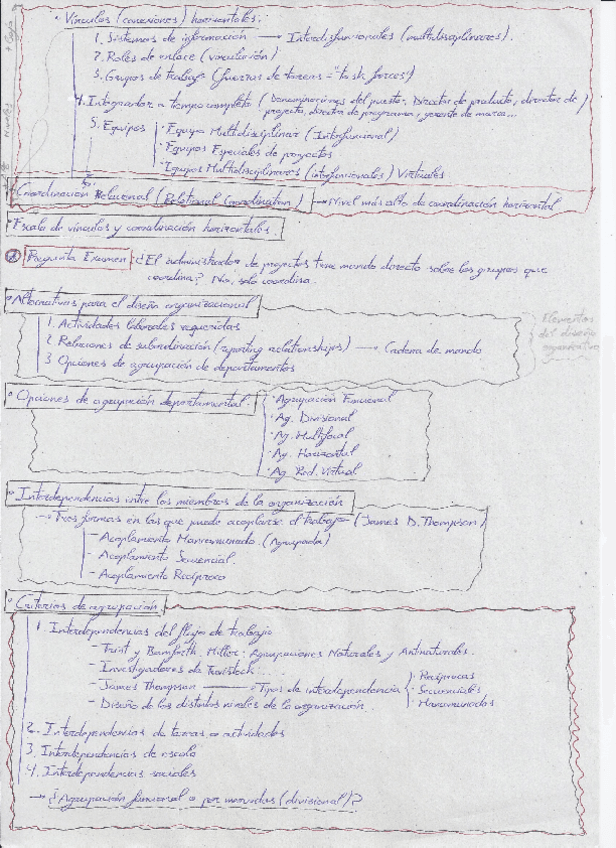 • Vínculos (conexiones) horizontales:
1. Sistemas de información → Interdisfuncionales (multidisciplinares).
2. Roles de enlace (vinculación)
3. Grupos de trabajo (fuerzas de tareas = "task forces")
4. Integrador a tiempo completo (Denominaciones del puesto: Director de producto, director de proyecto, director de programa, gerente de marca...
5. Equipos
· Equipo Multidisciplinar (Interfuncional)
· Equipos Especiales de proyectos
· Equipos Multidisciplinares (interfuncionales) Virtuales
Coordinación Relacional (Relational Coordination) → Nivel más alto de coordinación horizontal
• Escala de vínculos y coordinación horizontales.
Pregunta Examen ¿El administrador de proyectos tiene mando directo sobre los grupos que
coordina? No, solo coordina.
• Alternativas para el diseño organizacional
1. Actividades laborales requeridas
2. Relaciones de subordinación (reporting relationships) → Cadena de mando
3. Opciones de agrupación de departamentos
Elementos
del diseño
organizativo
• Opciones de agrupación departamental.
· Agrupación Funcional
· Ag. Divisional
· Ag. Multifocal
· Ag. Horizontal
· Ag. Red. Virtual
• Interdependencias entre los miembros de la organización
→ Tres formas en las que puede acoplarse el trabajo (James D. Thompson)
– Acoplamiento Mancomunado. (Agrupada)
– Acoplamiento Secuencial.
– Acoplamiento Recíproco
• Criterios de agrupación
1. Interdependencias del flujo de trabajo
– Trist y Bamforth, Miller: Agrupaciones Naturales y Antinaturales.
– Investigadores de Tavistock...
– James Thompson → Tipos de interdependencia
· Recíprocas
· Secuenciales
· Mancomunadas
– Diseño de los distintos niveles de la organización.
2. Interdependencias de tareas o actividades
3. Interdependencias de escala
4. Interdependencias sociales
→ ¿Agrupación funcional o por mercados (divisional)?